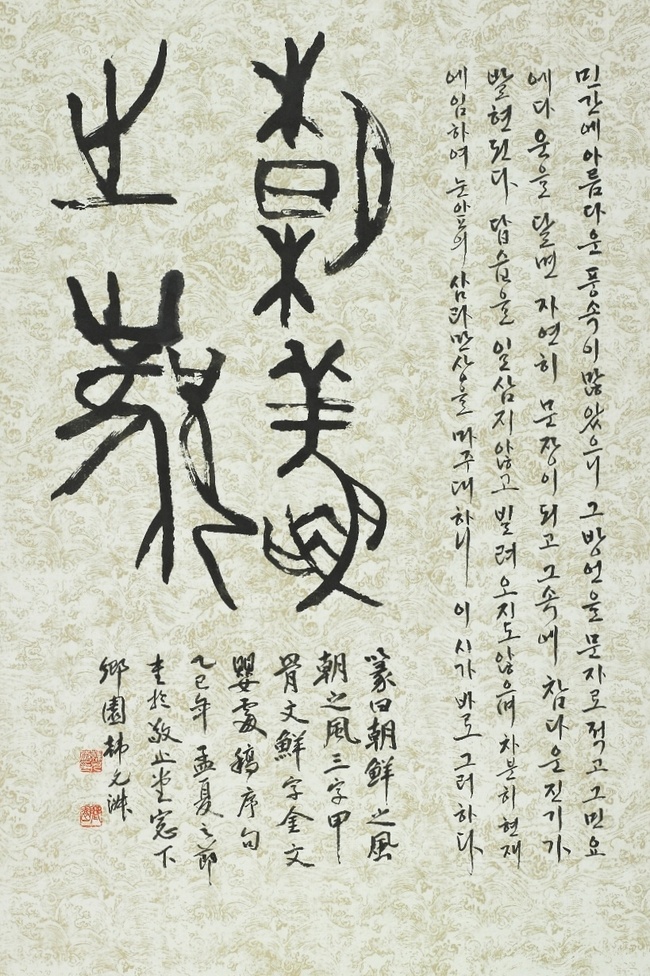 민간에 아름다운 풍속이 많았으니 그 방언을 문자로 적고 그 민요
에다 운을 달면 자연히 문장이 되고 그 속에 참다운 진기가
발현된다. 답습을 일삼지 않고 빌려오지도 않으며 차분히 현재
에 임하여 눈앞의 삼라만상을 마주 대하니 이 시가 바로 그러하다.
朝鮮
之風
篆曰朝鮮之風
朝之風三字甲
骨文鮮字金文
嬰處稿序句
乙巳年 孟夏之節
書於敬止堂窓下
鄉園 林